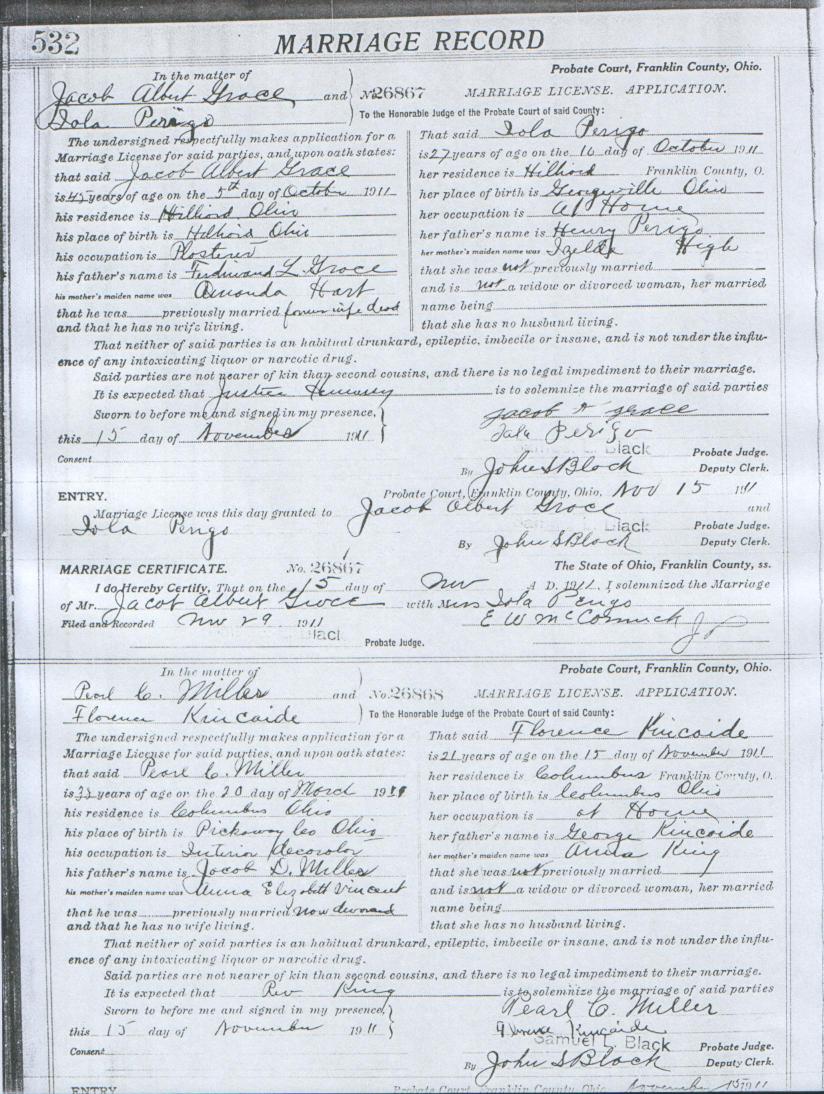 532 MARRIAGE RECORD
Probate Court, Franklin County, Ohio.
In the matter of
Jacob Albert Grace and No. 26867 MARRIAGE LICENSE. APPLICATION.
Iola Perigo To the Honorable Judge of the Probate Court of said County:
The undersigned respectfully makes application for a
Marriage License for said parties, and upon oath states:
that said Jacob Albert Grace
is 45 years of age on the 5th day of October 1911
his residence is Hilliard Ohio
his place of birth is Hilliard Ohio
his occupation is Plasterer
his father's name is Ferdinand L. Grace
his mother's maiden name was Amanda Hart
that he was previously married former wife dead
and that he has no wife living.
That said Iola Perigo
is 27 years of age on the 16 day of October 1911
her residence is Hilliard Franklin County, O.
her place of birth is Ohio
her occupation is At Home
her father's name is Henry Perigo
her mother's maiden name was Izelda High
that she was not previously married
and is not a widow or divorced woman, her married
name being
that she has no husband living.
That neither of said parties is an habitual drunkard, epileptic, imbecile or insane, and is not under the influ-
ence of any intoxicating liquor or narcotic drug.
Said parties are not nearer of kin than second cousins, and there is no legal impediment to their marriage.
It is expected that Justice is to solemnize the marriage of said parties
Sworn to before me and signed in my presence, Jacob A Grace
this 15 day of November 1911 Iola Perigo
Black Probate Judge.
Consent By John S Black Deputy Clerk.
ENTRY. Probate Court, Franklin County, Ohio, Nov 15 1911
Marriage License was this day granted to Jacob Albert Grace and
Iola Perigo Black Probate Judge.
By John S Black Deputy Clerk.
MARRIAGE CERTIFICATE. No. 26867 The State of Ohio, Franklin County, ss.
I do Hereby Certify, That on the 15 day of Nov A D. 1911, I solemnized the Marriage
of Mr. Jacob Albert Grace with Miss Iola Perigo
Filed and Recorded Nov 29 1911 E W McCormick J P
Probate Judge.
Probate Court, Franklin County, Ohio.
In the matter of
Pearl C. Miller and No. 26868 MARRIAGE LICENSE. APPLICATION.
Florence Kincaide To the Honorable Judge of the Probate Court of said County:
The undersigned respectfully makes application for a
Marriage License for said parties, and upon oath states:
that said Pearl C. Miller
is years of age on the 20 day of March 1911
his residence is Columbus Ohio
his place of birth is Pickaway Co Ohio
his occupation is Interior Decorator
his father's name is Jacob D. Miller
his mother's maiden name was Anna Elizabeth Vincent
that he was previously married now divorced
and that he has no wife living.
That said Florence Kincaide
is 21 years of age on the 15 day of November 1911
her residence is Columbus Franklin County, O.
her place of birth is Columbus Ohio
her occupation is at Home
her father's name is George Kincaide
her mother's maiden name was Anna King
that she was not previously married
and is not a widow or divorced woman, her married
name being
that she has no husband living.
That neither of said parties is an habitual drunkard, epileptic, imbecile or insane, and is not under the influ-
ence of any intoxicating liquor or narcotic drug.
Said parties are not nearer of kin than second cousins, and there is no legal impediment to their marriage.
It is expected that Rev King is to solemnize the marriage of said parties
Sworn to before me and signed in my presence, Pearl C. Miller
this 15 day of November 1911 Florence Kincaide
Samuel L. Black Probate Judge.
Consent By John S Black Deputy Clerk.
ENTRY Probate Court, Franklin County, Ohio, November 15 1911